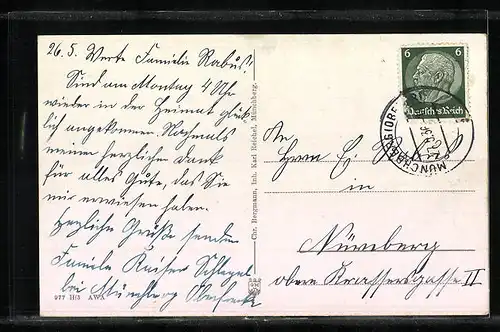 26.5. Werte Familie Rabus!
Sind am Montag 4 Uhr
wieder in der Heimat glück-
lich angekommen. Nochmals
meinen herzlichen Dank
für alles Gute, das Sie
mir erwiesen haben.
Herzliche Grüße senden
Familie Kaiser Schlegel
bei Münchberg Oberfranken
977 H/3 AWA
Chr. Bergmann, Inh. Karl Reichel, Münchberg.
6 6
Deutsches Reich
MÜNCHBERG
An
Herrn E.
in
Nürnberg
obere Krämersgasse II